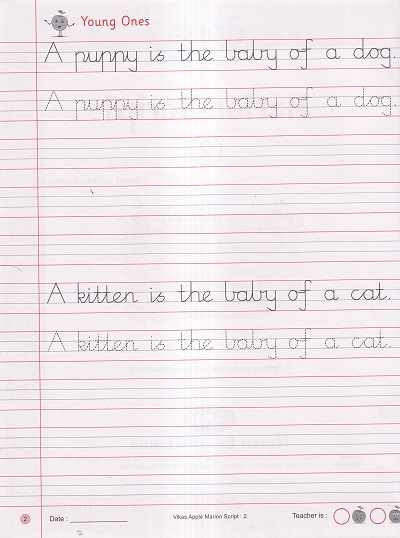 Young Ones
A puppy is the baby of a dog.
A puppy is the baby of a dog.
A kitten is the baby of a cat.
A kitten is the baby of a cat.
2 Date : Vikas Apple Marion Script : 2 Teacher is :